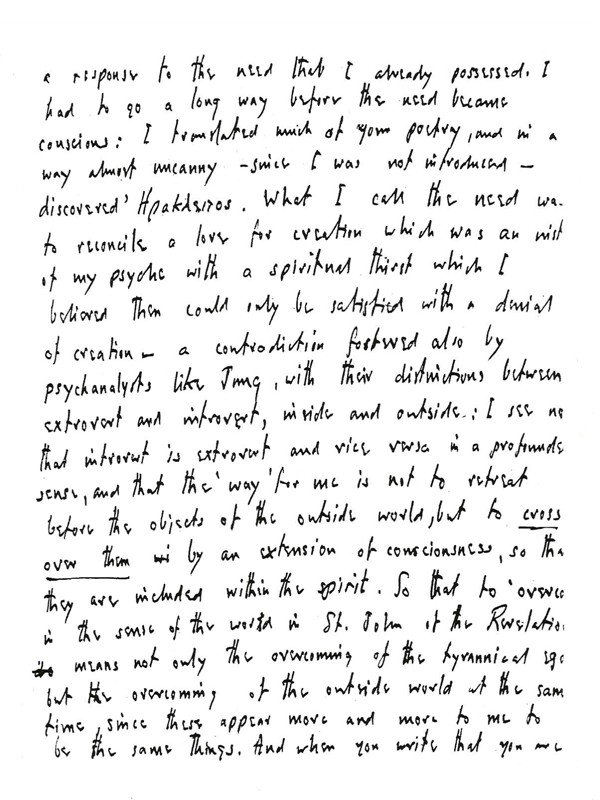 a response to the need that I already possessed. I
had to go a long way before the need became
conscious: I translated much of your poetry, and in a
way almost uncanny - since I was not introduced -
discovered' Ηρακλειτος. What I call the need wa
to reconcile a love for creation which was an inst
of my psyche with a spiritual thirst which I
believed then could only be satisfied with a denial
of creation - a contradiction fostered also by
psychanalysts like Jung, with their distinctions between
extrovert and introvert, inside and outside.: I see no
that introvert is extrovert and vice versa in a profounde
sense, and that the 'way' for me is not to retreat
before the objects of the outside world, but to cross
over them by an extension of consciousness, so tha
they are included within the spirit. So that to 'overco
in the sense of the world in St. John of the Revelatio
means not only the overcoming of the tyrannical ego
but the overcoming of the outside world at the sam
time, since these appear more and more to me to
be the same things. And when you write that you are